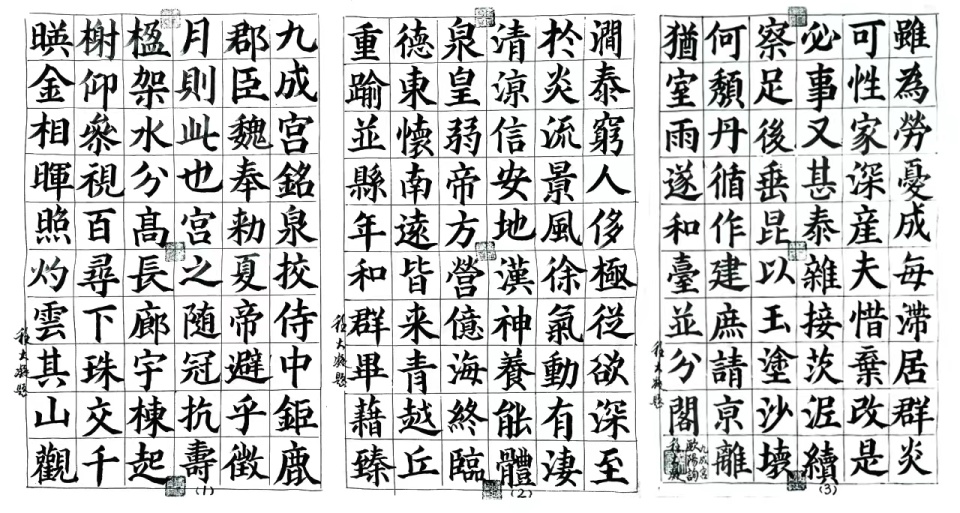 九成宮銘泉挍侍中鉅鹿
郡臣魏奉勑夏帝避乎徵
月則此也宮之随冠抗壽
楹架水分髙長廊宇棟起
榭仰叅視百尋下珠交千
暎金相暉照灼雲其山觀
(1)
澗泰窮人侈極從欲深至
扵炎流景風徐氣動有淒
清涼信安地漢神養能體
泉皇弱帝方營億海終臨
德東懷南遠皆来青越丘
重踰並縣年和群畢藉臻
(2)
雖為勞憂成每滯居群炎
可性家深産夫惜棄改是
必事又甚泰雜接茨泥續
察足後垂昆以玉塗沙壊
何頽丹循作建庶請亰離
猶室雨遂和臺並分閣
九成宮
歐陽詢
(3)